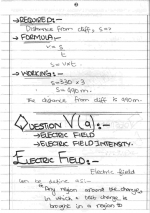 →REQUIRED:-
Distance from cliff, S=?
→FORMULA:-
V = S
t
S = vxt.
→WORKING:-
S=330 x 3
S= 990 m.
The distance from cliff is 990m.
QUESTION V(a):-
→ELECTRIC FIELD
→ELECTRIC FIELD INTENSITY.
ELECTRIC FIELD:-
Electric field
can be define as:-
"Any region around the charge,
in which a test charge is
brought in a region to